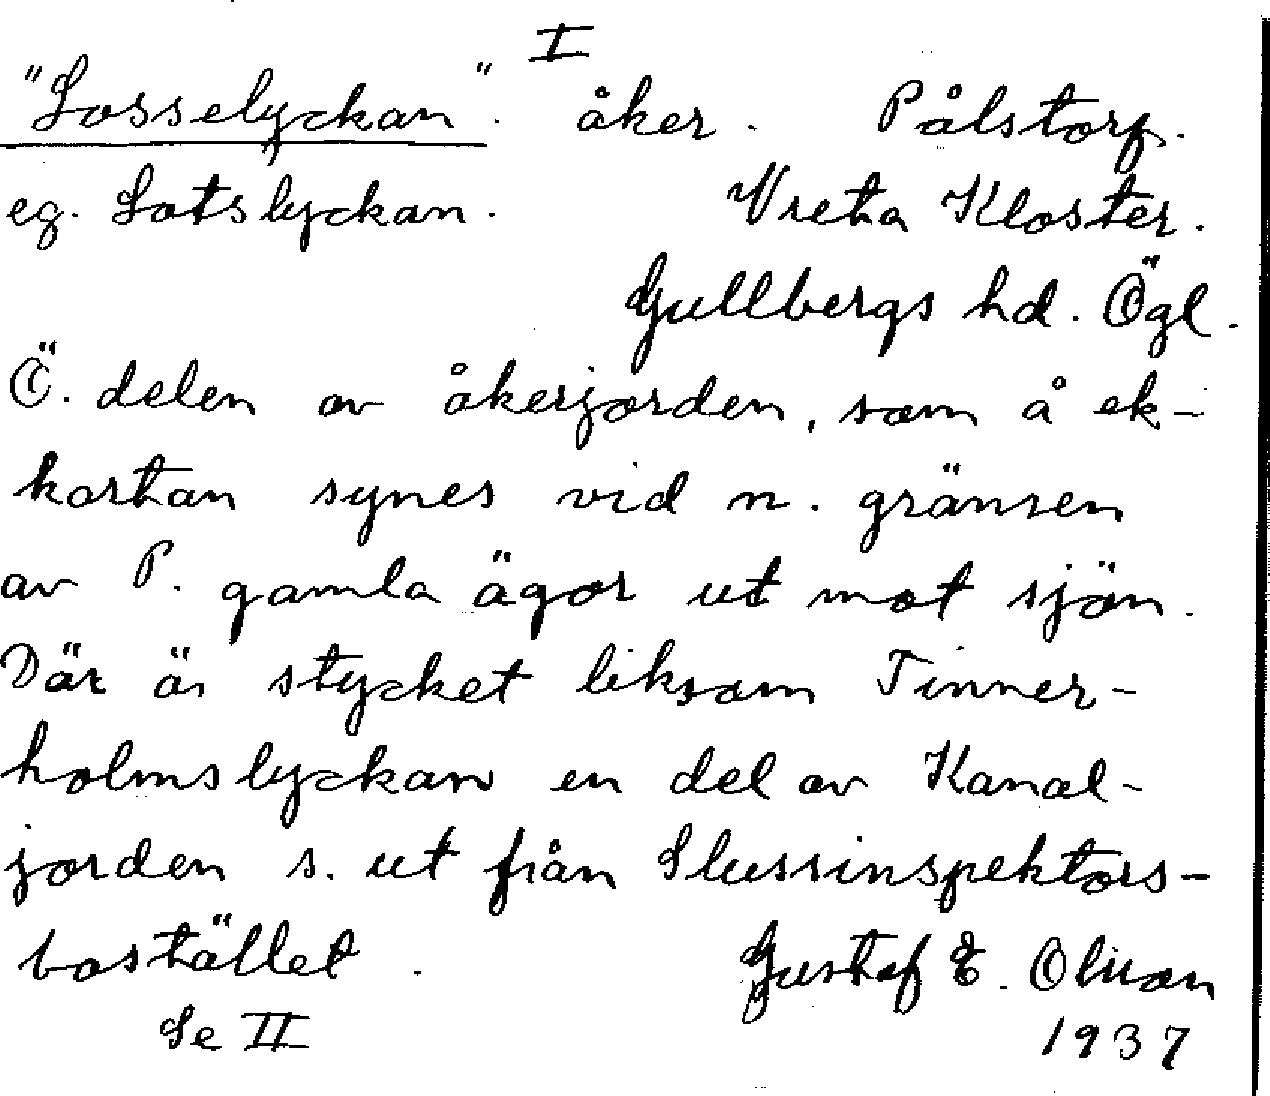 I
"Losselyckan". åker. Pålstorp.
eg. Lotslyckan. Vreta Kloster.
Gullbergs hd. Ögl.
Ö. delen av åkerjorden, som å ek-
kartan synes vid n. gränsen
av P. gamla ägor ut mot sjön.
Där är stycket liksom Tinner-
holmslyckan en del av Kanal-
jorden s. ut från Slussinspektors-
bostället.
Gustaf E. Olsson
Se II
1937